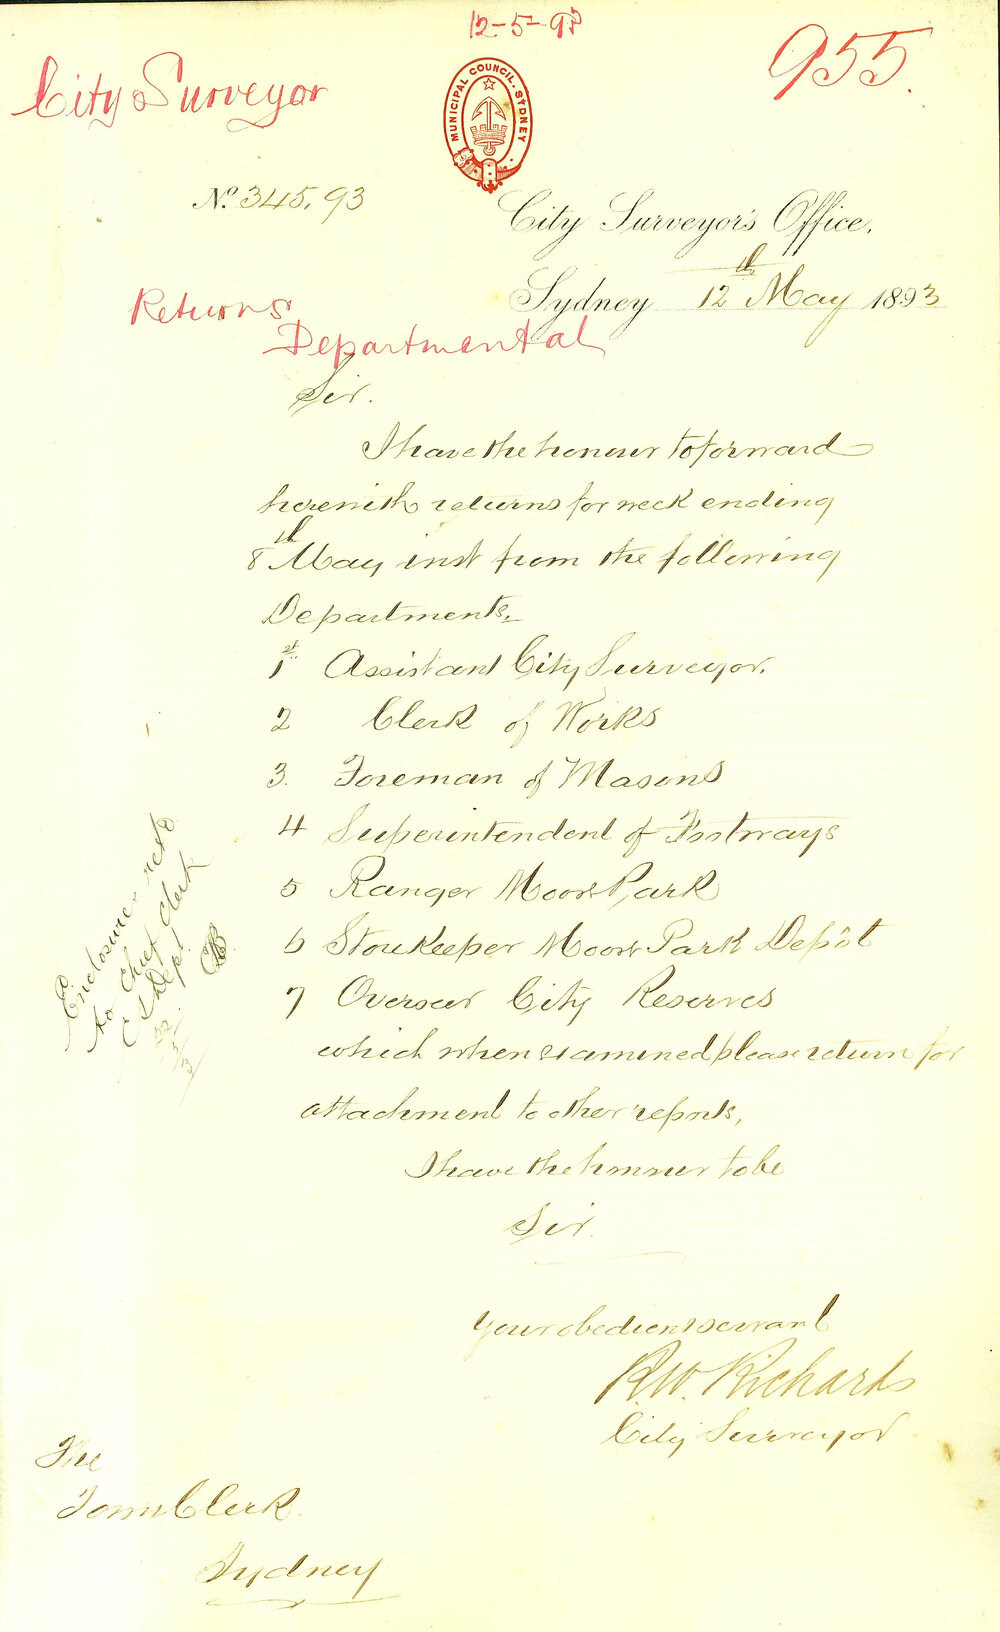 12-5-93
955.
City Surveyor
MUNICIPAL COUNCIL. SYDNEY
No. 345.93
City Surveyor's Office,
Sydney 12th May 1893
Returns
Departmental
Sir.
I have the honour to forward
herewith returns for week ending
8th May inst from the following
Departments,-
1st Assistant City Surveyor.
2 Clerk of Works
3. Foreman of Masons
4 Superintendent of Footways
5 Ranger Moore Park
6 Storekeeper Moore Park Depôt
7 Overseer City Reserves
which when examined please return for
attachment to other reports,
I have the honour to be
Sir.
Your obedient servant
R.W. Richards
City Surveyor
The
Town Clerk.
Sydney
Enclosures retd
to Chief Clerk
C S Dept.